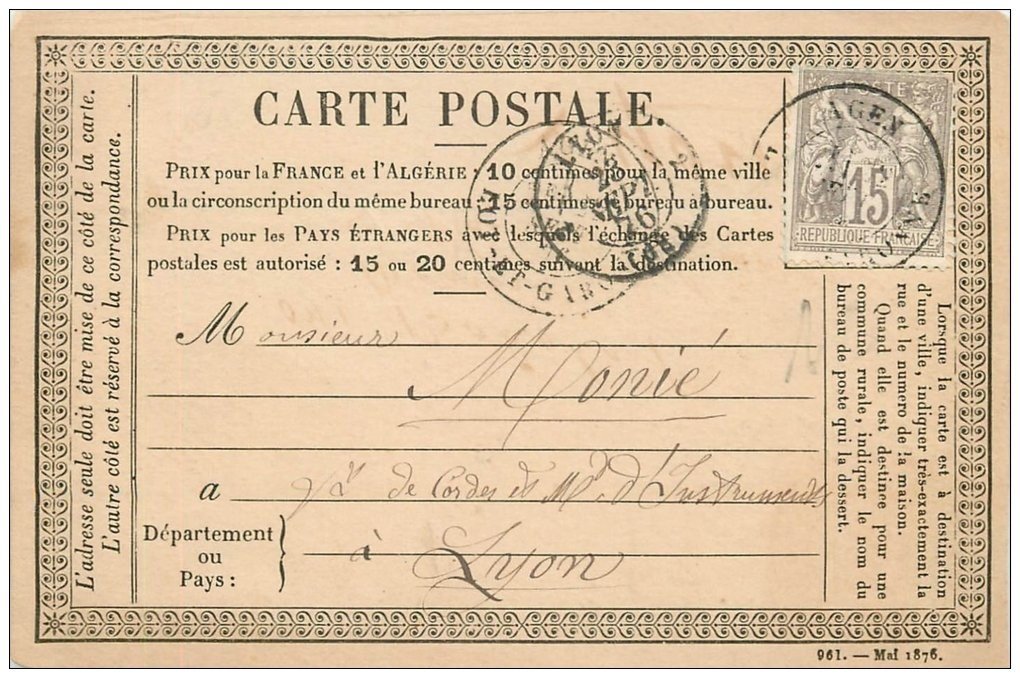 CARTE POSTALE.
PRIX pour la FRANCE et l'ALGÉRIE : 10 centimes pour la même ville
ou la circonscription du même bureau ; 15 centimes de bureau à bureau.
PRIX pour les PAYS ÉTRANGERS avec lesquels l'échange des Cartes
postales est autorisé : 15 ou 20 centimes suivant la destination.
POSTE
15
REPUBLIQUE FRANÇAISE
AGEN
LYON
76
LOT-ET-GARONNE
Monsieur
Monié
a
de Cordes et Md d'Instruments
à
Département
ou
Pays :
Lyon
L'adresse seule doit être mise de ce côté de la carte.
L'autre côté est réservé à la correspondance.
Lorsque la carte est à destination
d'une ville, indiquer très-exactement la
rue et le numero de la maison.
Quand elle est destinée pour une
commune rurale, indiquer le nom du
bureau de poste qui la dessert.
961. — Mai 1876.